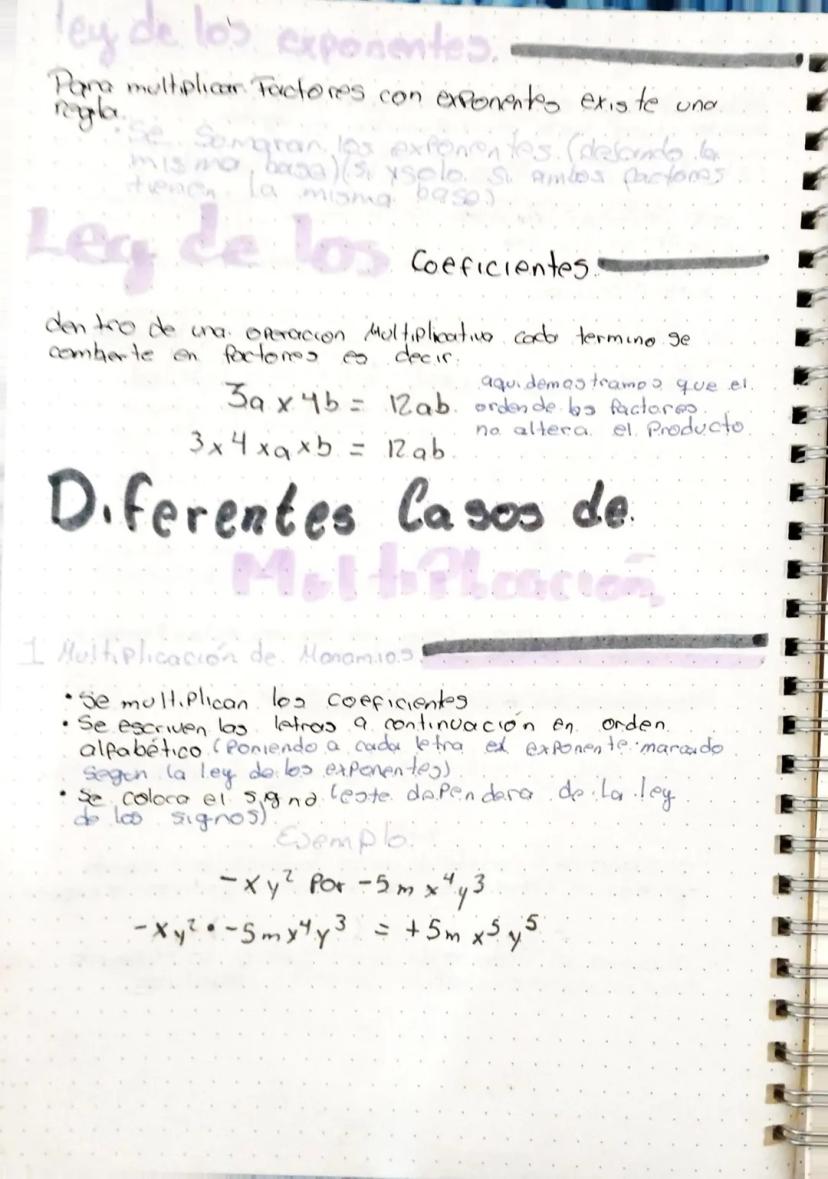 ley de los exponentes.
Para multiplicar Factores con exponentes existe una
regla.
• Se Somaran los exponentes (dejando la
misma base) (si y solo si ambos factores
tienen la misma base)
Ley de los Coeficientes
dentro de una operacion Multiplicativa cada termino se
comberte en factores es decir.
3a x 4b = 12ab. aqui demostramos que el
orden de los factores
3 x 4 x a x b = 12ab no altera el Producto
Diferentes Casos de
Multiplicación
1 Multiplicación de Monomios
• Se multiplican los coeficientes
• Se escriven las letras a continuación en orden
alfabético (Poniendo a cada letra el exponente marcado
segun la ley de los exponentes)
• Se coloca el signo (este dependera de la ley
de los signos)
Ejemplo.
-xy² Por -5mx⁴y³
-xy² • -5mx⁴y³ = +5mx⁵y⁵